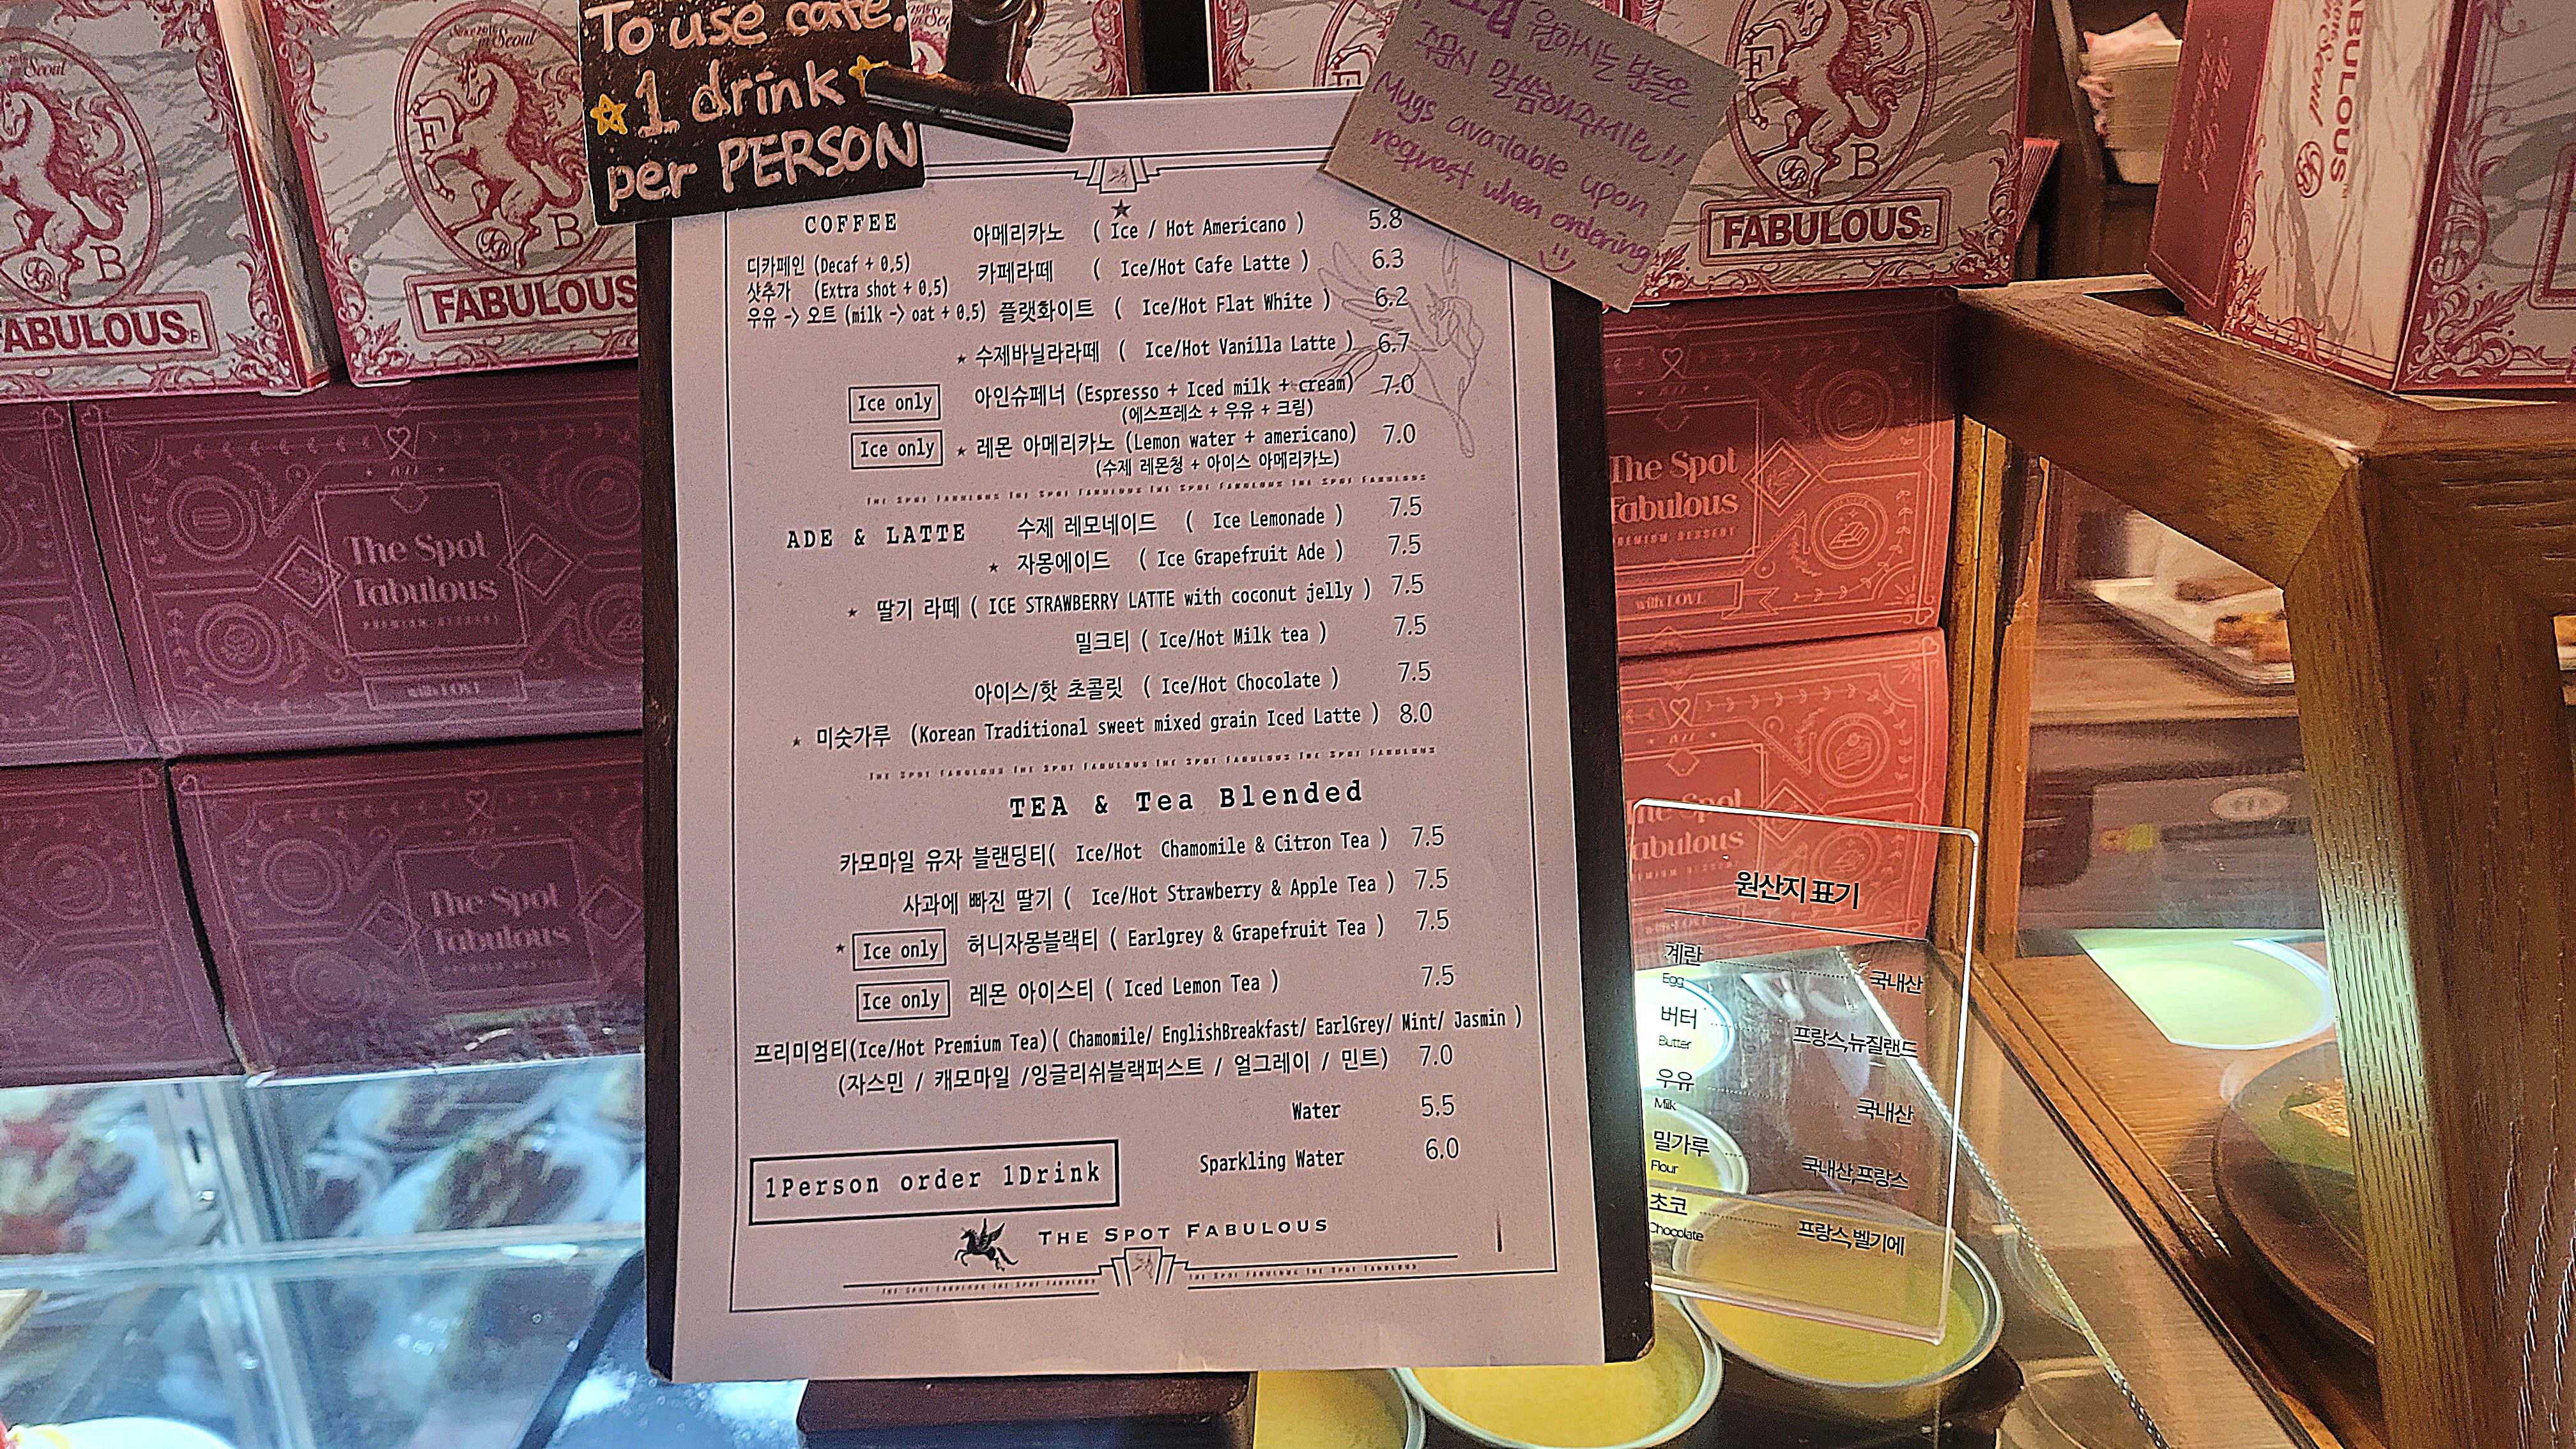 To use cafe,
1 drink
per PERSON
원하시는 분들은
주문시 말씀해주세요!!
Mugs available upon
request when ordering
COFFEE
아메리카노 ( Ice / Hot Americano ) 5.8
디카페인 (Decaf + 0.5)
카페라떼 ( Ice/Hot Cafe Latte ) 6.3
샷추가 (Extra shot + 0.5)
우유 -> 오트 (milk -> oat + 0.5)
플랫화이트 ( Ice/Hot Flat White ) 6.2
★ 수제바닐라라떼 ( Ice/Hot Vanilla Latte ) 6.7
Ice only 아인슈페너 (Espresso + Iced milk + cream) 7.0
(에스프레소 + 우유 + 크림)
Ice only ★ 레몬 아메리카노 (Lemon water + americano) 7.0
(수제 레몬청 + 아이스 아메리카노)
The Spot Fabulous The Spot Fabulous The Spot Fabulous The Spot Fabulous
ADE & LATTE
수제 레모네이드 ( Ice Lemonade ) 7.5
★ 자몽에이드 ( Ice Grapefruit Ade ) 7.5
★ 딸기 라떼 ( ICE STRAWBERRY LATTE with coconut jelly ) 7.5
밀크티 ( Ice/Hot Milk tea ) 7.5
아이스/핫 초콜릿 ( Ice/Hot Chocolate ) 7.5
★ 미숫가루 (Korean Traditional sweet mixed grain Iced Latte ) 8.0
The Spot Fabulous The Spot Fabulous The Spot Fabulous The Spot Fabulous
TEA & Tea Blended
카모마일 유자 블랜딩티( Ice/Hot Chamomile & Citron Tea ) 7.5
사과에 빠진 딸기 ( Ice/Hot Strawberry & Apple Tea ) 7.5
★ Ice only 허니자몽블랙티 ( Earlgrey & Grapefruit Tea ) 7.5
Ice only 레몬 아이스티 ( Iced Lemon Tea ) 7.5
프리미엄티(Ice/Hot Premium Tea)( Chamomile/ EnglishBreakfast/ EarlGrey/ Mint/ Jasmin )
(자스민 / 캐모마일 /잉글리쉬블랙퍼스트 / 얼그레이 / 민트) 7.0
Water 5.5
Sparkling Water 6.0
1Person order 1Drink
THE SPOT FABULOUS
The Spot Fabulous The Spot Fabulous
The Spot Fabulous The Spot Fabulous
원산지 표기
계란 국내산
Egg
버터 프랑스,뉴질랜드
Butter
우유 국내산
Milk
밀가루 국내산,프랑스
Flour
초코 프랑스,벨기에
Chocolate
in Seoul
B
FABULOUS
Since 2016
in Seoul
F
B
FABULOUS
F
B
FABULOUS
FABULOUS
in Seoul
The Spot
Fabulous
PREMIUM DESSERT
with LOVE
The Spot
Fabulous
The Spot
Fabulous
PREMIUM DESSERT
with LOVE
The Spot
Fabulous